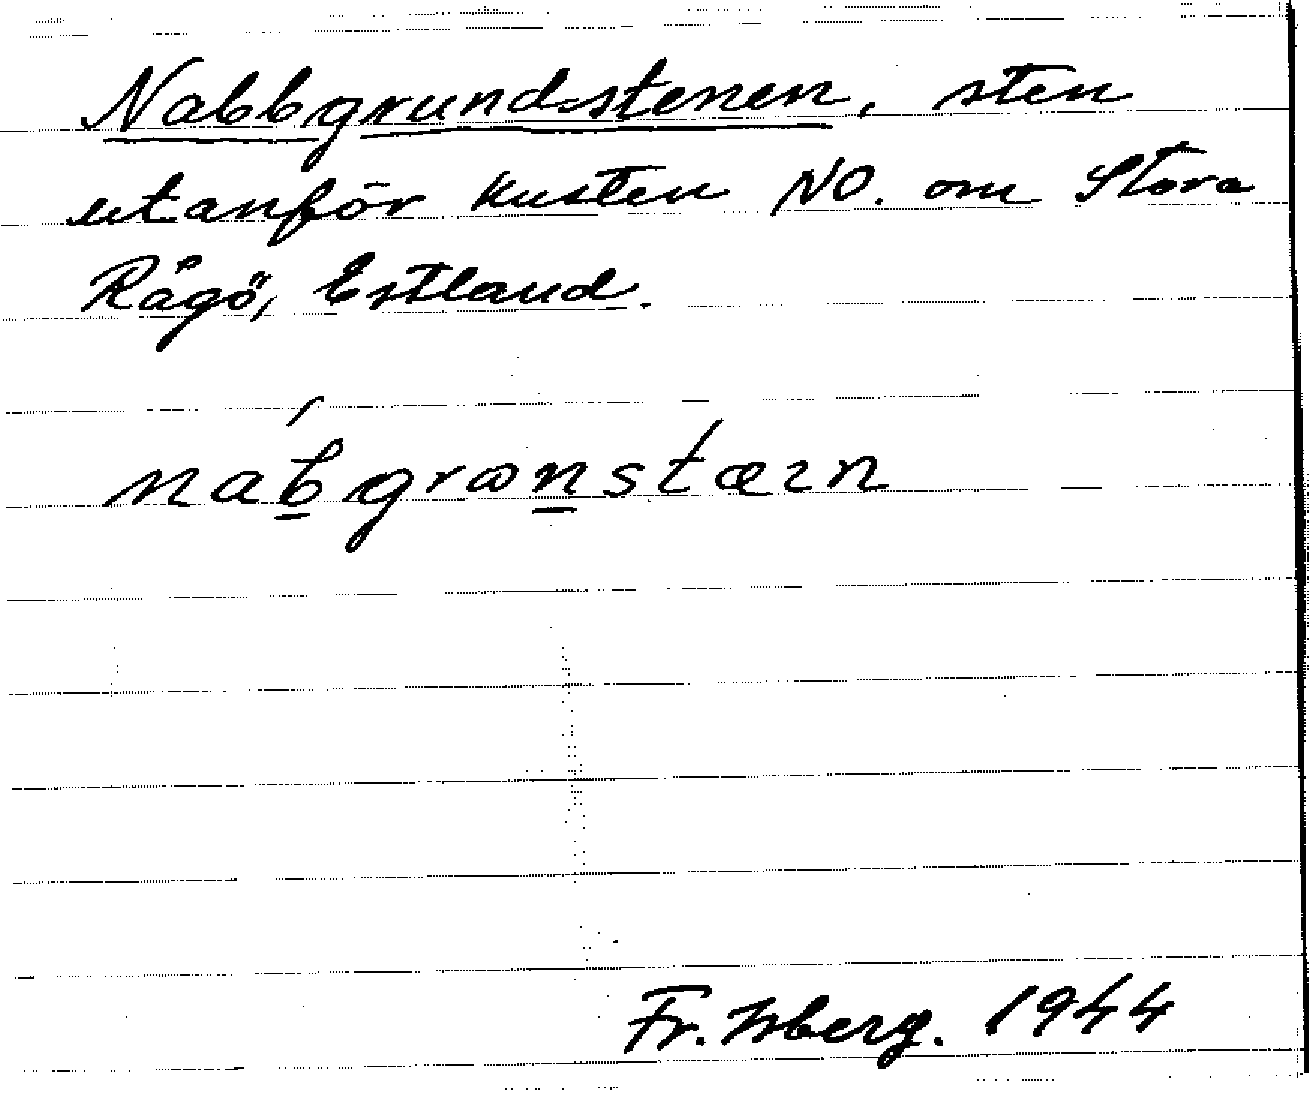 Nabbgrundstenen, sten
utanför kusten NO. om Stora
Rågö, Estland.
náb̲grωn̲stæɪn
Fr. Isberg. 1944